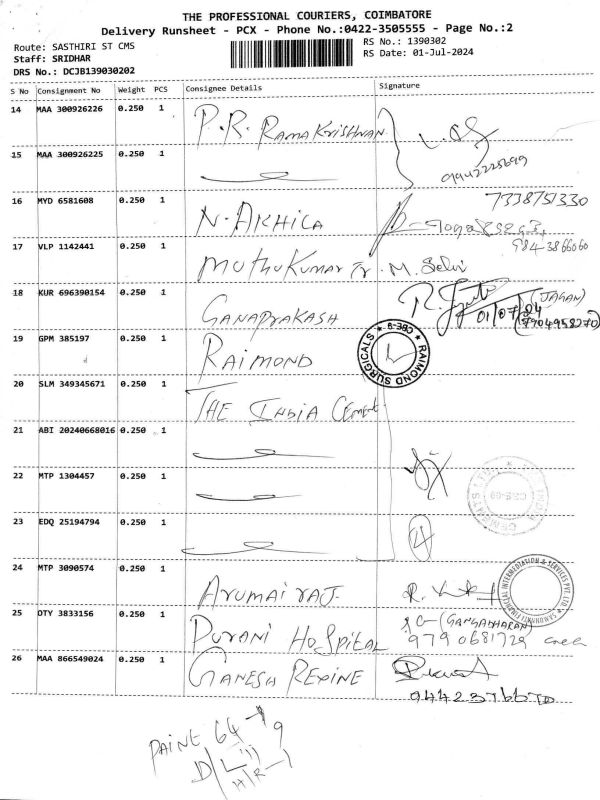 THE PROFESSIONAL COURIERS, COIMBATORE
Delivery Runsheet - PCX - Phone No.:0422-3505555 - Page No.:2
Route: SASTHIRI ST CMS
RS No.: 1390302
Staff: SRIDHAR
RS Date: 01-Jul-2024
DRS No.: DCJB139030202
S No Consignment No Weight PCS Consignee Details Signature
14 MAA 300926226 0.250 1 P.R. RamaKrishnan
15 MAA 300926225 0.250 1 9942225699
16 MYD 6581608 0.250 1 N. AKHILA 7338751330
17 VLP 1142441 0.250 1 MuthuKumar Tr. M. Selvi 9843866060
18 KUR 696390154 0.250 1 GANAPRAKASH 01/07/24 (JAGAN) (7904958270)
19 GPM 385197 0.250 1 RAIMOND RAIMOND SURGICALS CBE-9
20 SLM 349345671 0.250 1 THE INDIA Cement
21 ABI 20240668016 0.250 1
22 MTP 1304457 0.250 1
23 EDQ 25194794 0.250 1
24 MTP 3090574 0.250 1 Arumai raj.
25 OTY 3833156 0.250 1 Purani Hospital (GANGADHARAN) 9790681729
26 MAA 866549024 0.250 1 GANESH REXINE 9442376670
PAINE 64 - 9
D/L
H/R-1